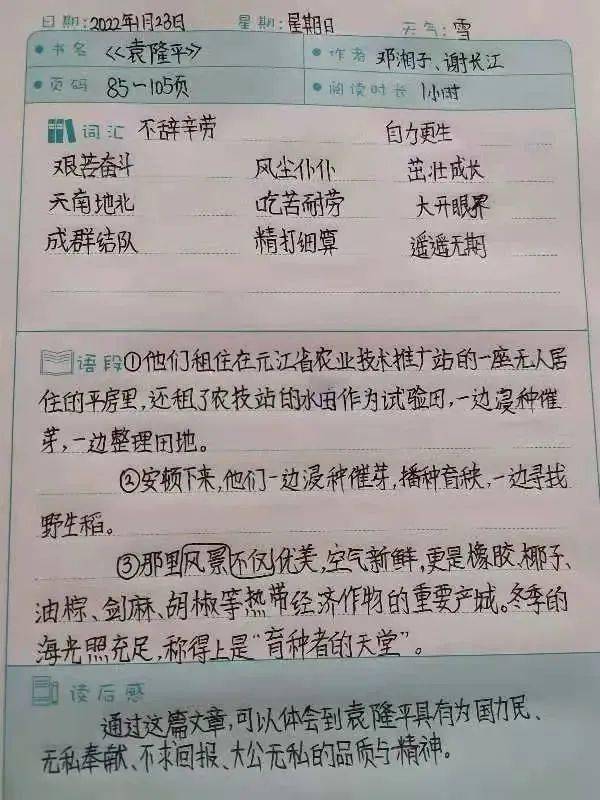 日期:2022年1月23日 星期:星期日 天气:雪
书名 《袁隆平》 作者 邓湘子、谢长江
页码 85一105页 阅读时长 1小时
词汇 不辞辛劳 自力更生
艰苦奋斗 风尘仆仆 茁壮成长
天南地北 吃苦耐劳 大开眼界
成群结队 精打细算 遥遥无期
语段 ①他们租住在元江省农业技术推广站的一座无人居
住的平房里,还租了农技站的水田作为试验田,一边浸种催
芽,一边整理田地。
②安顿下来,他们一边浸种催芽,播种育秧,一边寻找
野生稻。
③那里风景不仅优美,空气新鲜,更是橡胶、椰子、
油棕、剑麻、胡椒等热带经济作物的重要产城。冬季的
海光照充足,称得上是“育种者的天堂”。
读后感
通过这篇文章,可以体会到袁隆平具有为国力民、
无私奉献、不求回报、大公无私的品质与精神。